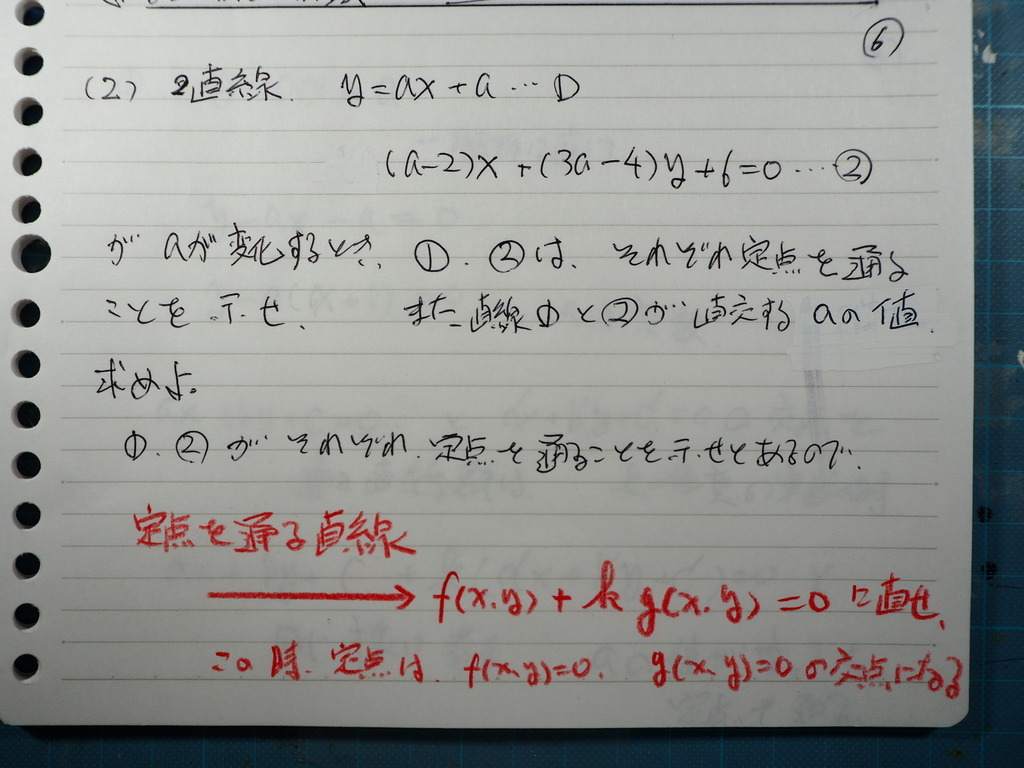 ⑥
(2) 2直線. y=ax+a … ①
(a-2)x+(3a-4)y+6=0 … ②
が aが変化するとき、①.②は、それぞれ定点を通る
ことを示せ、 また直線①と②が直交するaの値
求めよ。
①.②がそれぞれ.定点を通ることを示せとあるので.
定点を通る直線
→ f(x.y)+k g(x.y)=0 に直せ、
この時.定点は f(x.y)=0. g(x.y)=0 の交点になる